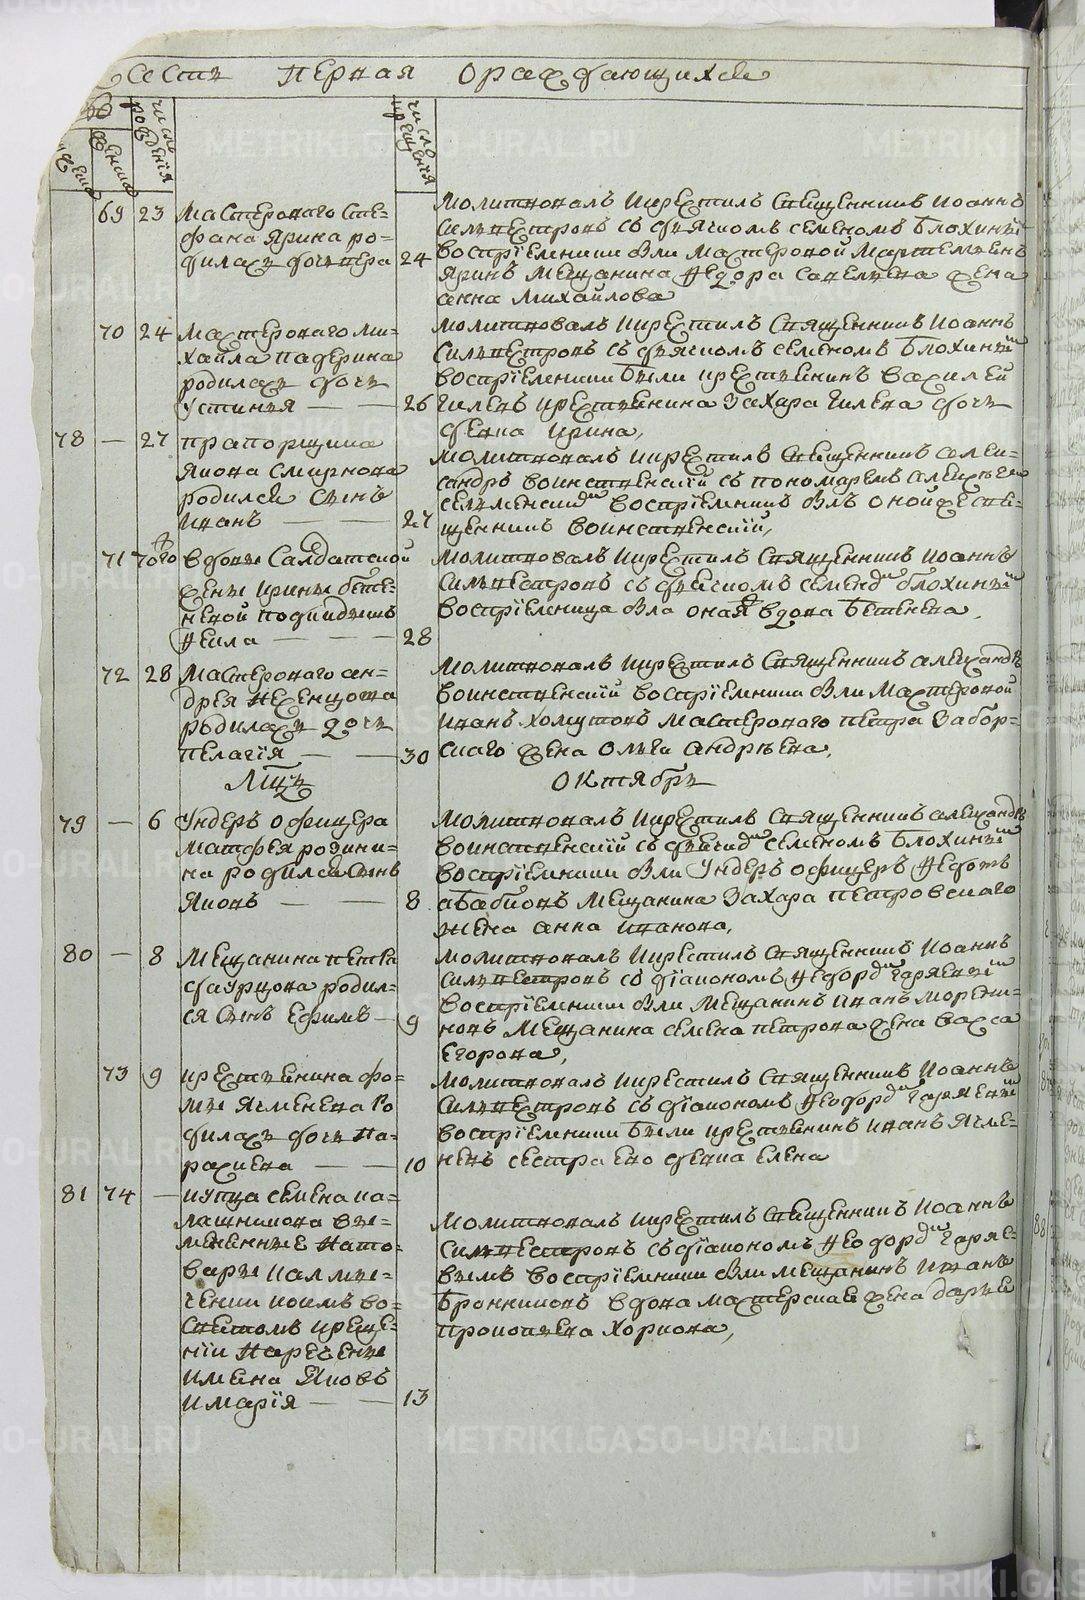 Часть первая о раждающихся
число рождения
число крещения
69 23 Мастероваго Сте-
фана Ярина ро-
дилась дочь Вера 24
молитвовалъ и крестилъ Священникъ Иоаннъ
Сильвестровъ съ дьячкомъ Семеномъ Блохинымъ
восприемники были мастеровой
Яринъ мещанина Федора Савельева жена
анна Михайлова
70 24 Мастероваго Ми-
хайла Падерина
родилась дочь
Устинья — — 26
молитвовалъ и крестилъ Священникъ Иоаннъ
Сильвестровъ съ дьячкомъ Семеномъ Блохинымъ
восприемники были крестьянинъ Василей
крестьянина Захара дочь
девка Ирина,
78 — 27 прапорщика
Якова Смирнова
родился сынъ
Иванъ — — 27
молитвовалъ и крестилъ Священникъ алек-
сандръ воинственский съ пономаремъ
восприемникъ былъ оной же свя-
щенникъ воинственский,
71 того вдовы Салдатской
жены Ирины Бете-
невой подкидышъ
Фекла — — 28
молитвовалъ и крестилъ Священникъ Иоаннъ
Сильвестровъ съ дьячкомъ Семеномъ Блохинымъ
восприемница была оная вдова Бетенева,
72 28 Мастероваго ан-
дрея
родилась дочь
пелагия — — 30
молитвовалъ и крестилъ Священникъ александръ
воинственский восприемники были мастеровой
иванъ хомутовъ мастероваго петра Забор-
скаго жена Ольга андреева,
Мцъ октябрь
79 — 6 Ундеръ офицера
матфея родики-
на родился сынъ
Яковъ — — 8
молитвовалъ и крестилъ Священникъ александръ
воинственский съ дьячкомъ Семеномъ Блохинымъ
восприемники были Ундеръ офицеръ Федотъ
мещанина Захара петровскаго
жена анна иванова,
80 — 8 Мещанина петра
фаурцова родил-
ся сынъ Ефимъ — 9
молитвовалъ и крестилъ Священникъ Иоаннъ
Сильвестровъ съ диакономъ Феодоромъ
восприемники были мещанинъ иванъ
мещанина семена петрова жена васса
Егорова,
73 9 крестьянина фо-
мы Ячменева ро
дилась дочь Па-
расковья — — 10
молитвовалъ и крестилъ Священникъ Иоаннъ
Сильвестровъ съ диакономъ Феодоромъ
восприемники были крестьянинъ иванъ Ячме-
невъ сестра его девка Елена
81 74 — купца семена ка-
лашникова
товары
коимъ во
святомъ креще-
нии наречены
имена Яковъ
и мария — — 13
молитвовалъ и крестилъ Священникъ Иоаннъ
Сильвестровъ съ диакономъ Феодоромъ
восприемники были мещанинъ иванъ
Бронниковъ вдова мастерская жена дарья
прокопьева Хоркова,